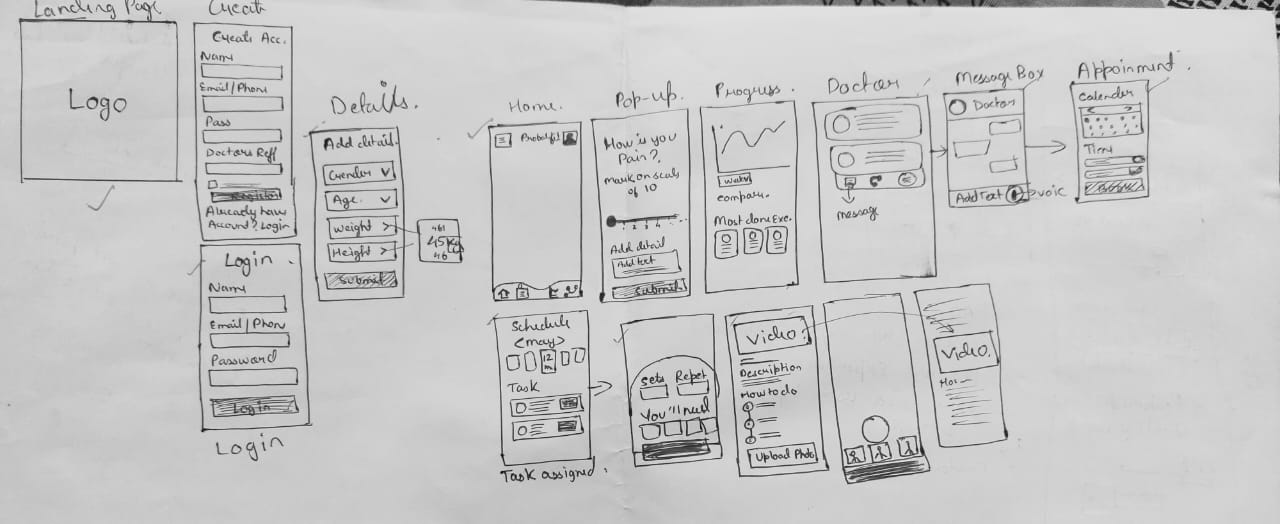 Landing Page
Logo
Creat
Creats Acc.
Name
Email/Phone
Pass
Doctors Reff
Register
Already have
Account? Login
Login
Name
Email/Phon
Password
Login
Login
Details.
Add detail.
Gender
Age.
weight >
Height >
Submit
461
45 Kg
46
Home.
Pop-up.
How is you
Pain?,
mark on scale
of 10
1 2 3 4
Add detail
Add text
Submit
Progress.
week
compare.
Most done Exe.
Doctor
message
Message Box
Doctor
Add Text
voic
Appoinment.
Calender
Time
Schedule
<may>
12
Task
Task assigned.
Sets Repet
You'll need
Video.
Description
How to do
Upload Photo
Video.